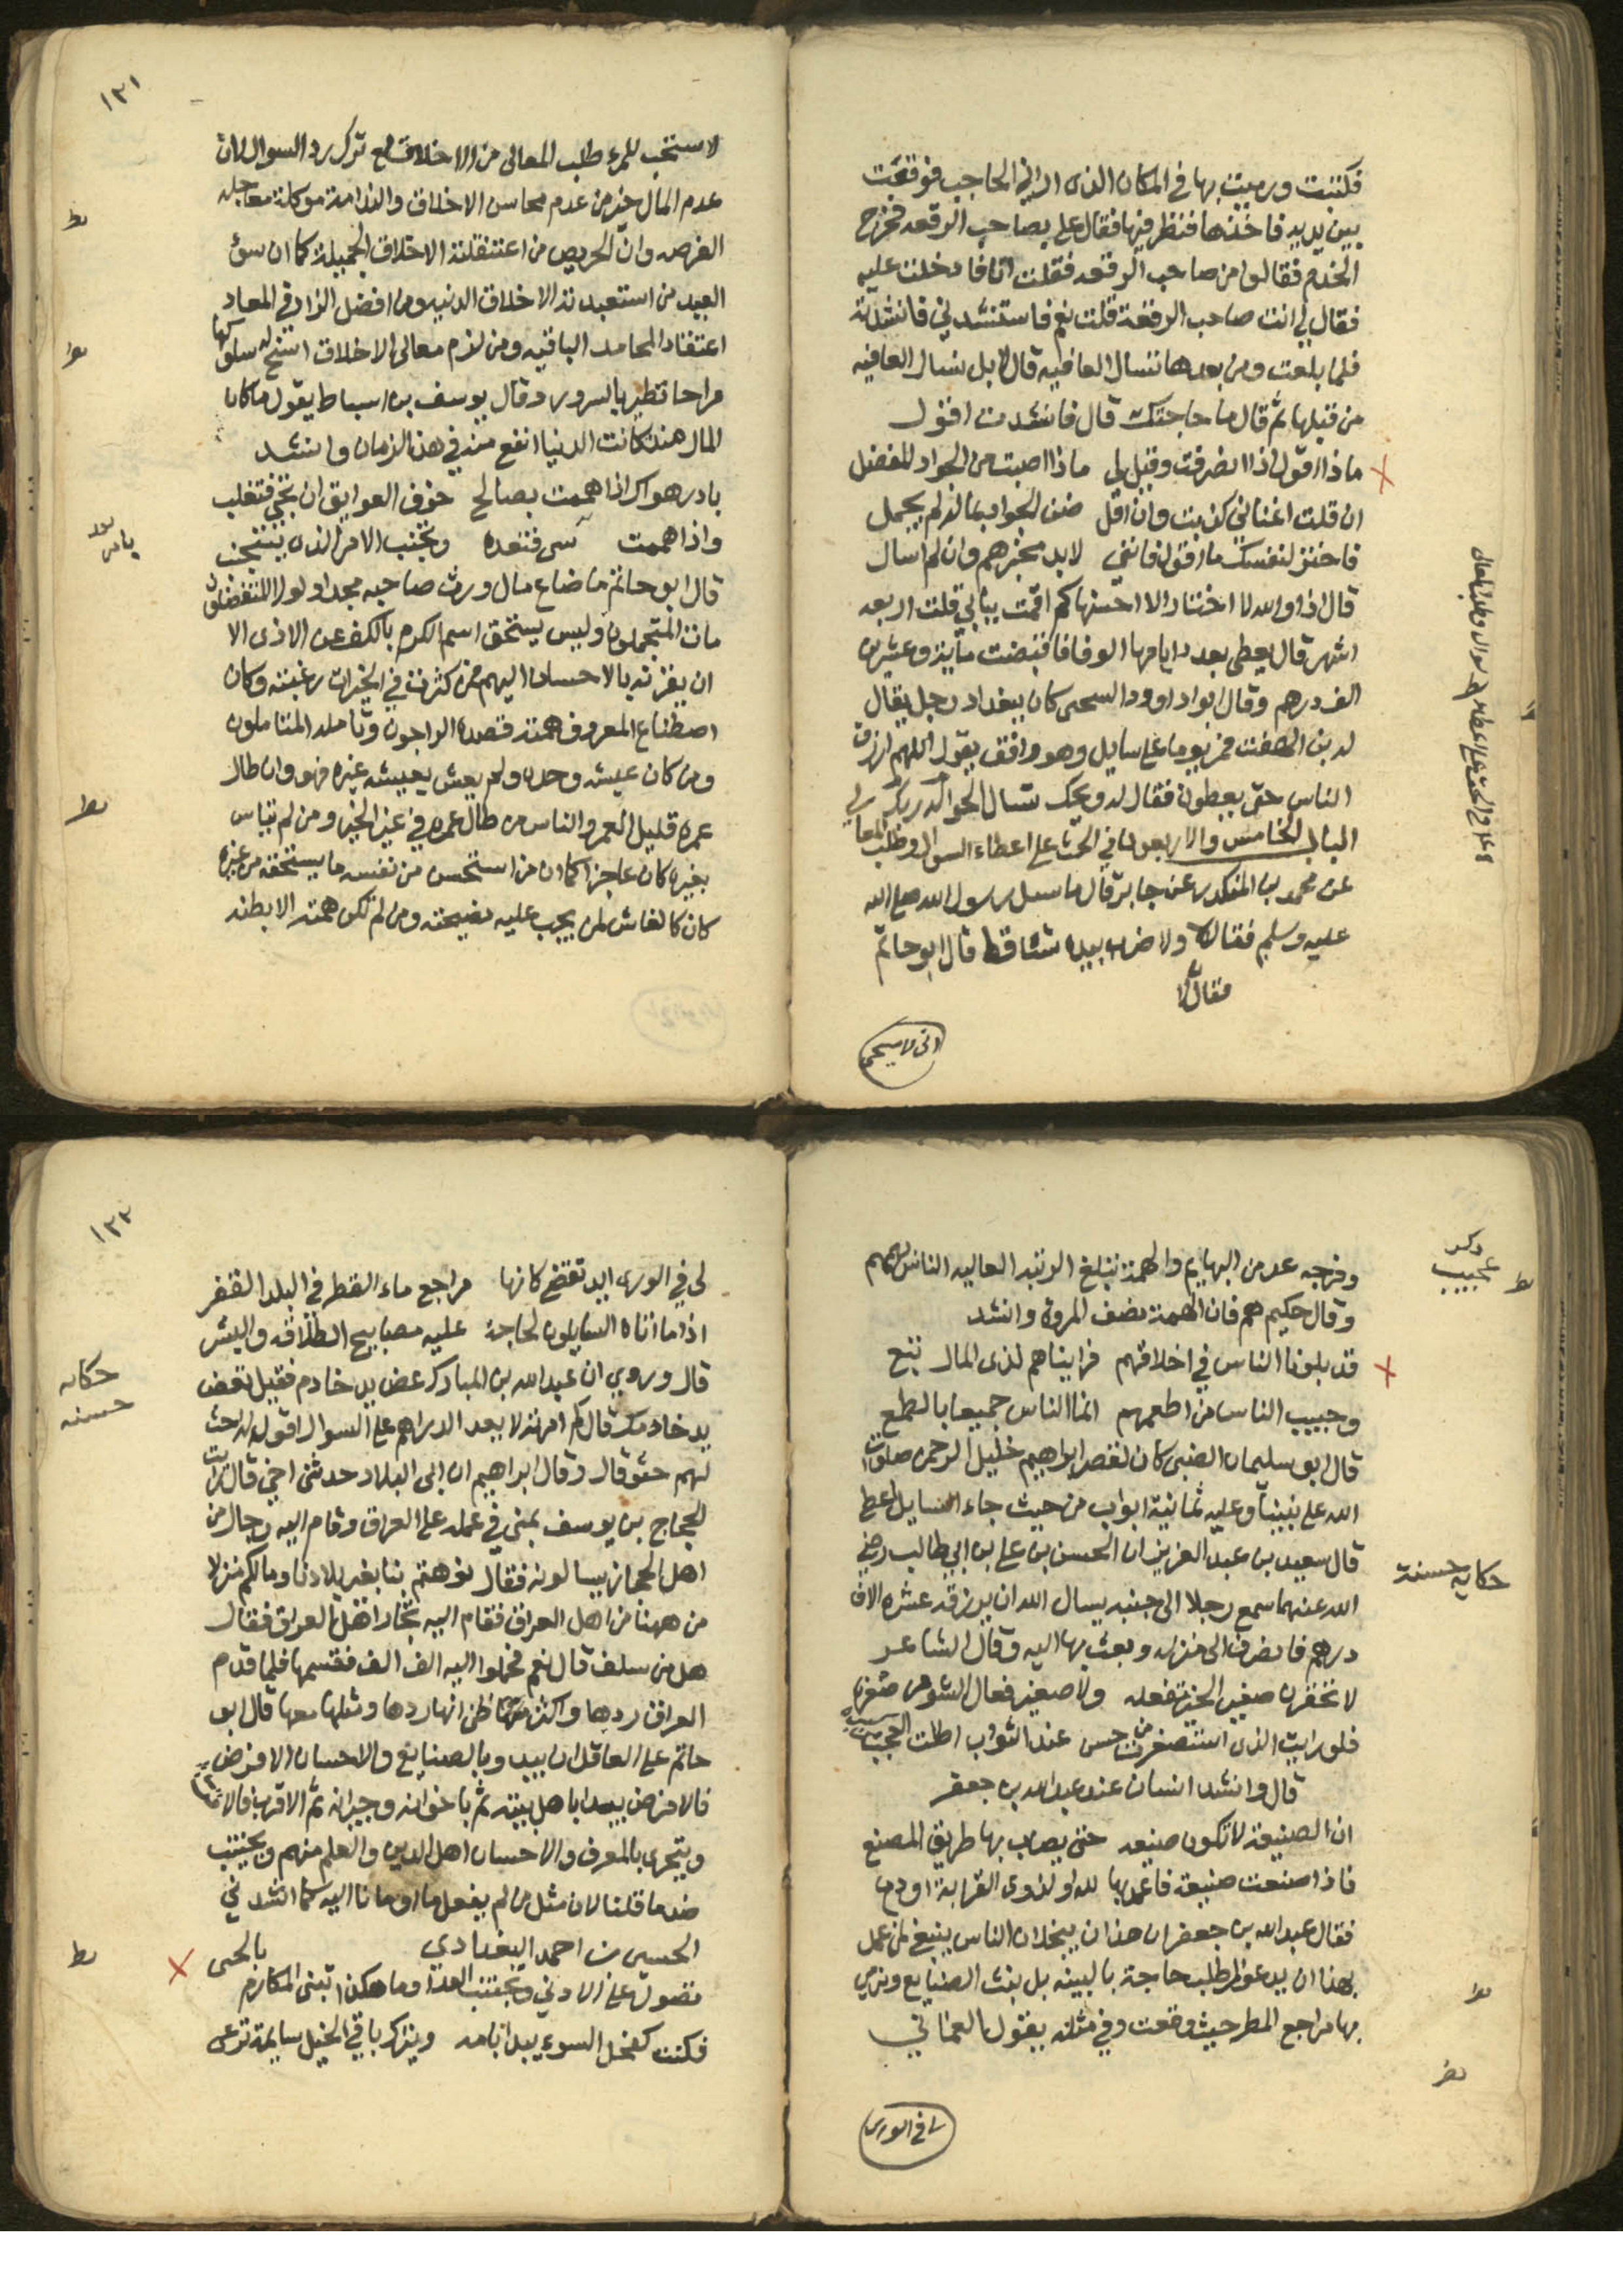 فكتبت ورميت بها في المكان الذي الي الحاجب فوقعت
بين يديه فاخذها فنظر فيها فقال علي بصاحب الرقعه فخرج
الخدم فقالوا من صاحب الرقعه فقلت انا فادخلت عليه
فقال لي انت صاحب الرقعة قلت نعم فاستنشدني فانشدته
فلما بلغت ومن بعدها نسال العافيه قال لا بل نسال العافيه
من قبلها ثم قال ما حاجتك قال فانشدت اقول
ماذا اقول اذا انصرفت وقيل لي ماذا اصبت من الجواد المفضل
ان قلت اغناني كذبت وان اقل ضن الجواد بماله لم يجمل
فاختر لنفسك ما اقول فانني لابد مخبرهم وان لم اسال
قال اذا والله لا اختار الا احسنها كم اقمت ببابي قلت اربعه
اشهر قال يعطى بعدد ايامها الوفا فقبضت مآية وعشرين
الف درهم وقال ابوا داوود السحى كان ببغداد رجل يقال
له بن الهفت فمر يوما على سايل وهو واقف يقول اللهم ارزق
الناس حتى يعطون فقال له ويحك تسال ربك
الباب الخامس والاربعون في الحث على اعطاء السوال وطلب المعالي
عن محمد بن المنكدر عن جابر قال ما سيل رسول الله صلى الله
عليه وسلم فقال لا ولا ضرب بيده شئا قط قال ابو حاتم
فقال لا
اني لاستحب
١٢١
لاستحب للمرء طلب المعالي من الاخلاق مع ترك رد السوال لان
عدم المال خير من عدم محاسن الاخلاق والندامة موكلة معاجله
الفرصه وان الحر من اعتقلته الاخلاق الجميلة كما ان سؤ
العبيد من استعبدته الاخلاق الدنيه ومن افضل الزاد في المعاد
اعتقاد المحامد الباقيه ومن لزم معالي الاخلاق انتج له سلوكها
فراخا تطير بالسرور وقال يوسف بن اسباط يقول ما كان
المال منذ كانت الدنيا انفع منه في هذا الزمان وانشد
بادر هواك اذا هممت بصالح خوف العوايق ان تجي فتغلب
واذا هممت سى فتعده وتجنب الامر الذي يتجنب
قال ابو حاتم ما ضاع مال ورث صاحبه مجدا ولولا المتفضلون
مات المتجملون وليس يستحق اسم الكرم بالكف عن الاذى الا
ان يقرنه بالاحسان اليهم فمن كثرت في الخيرات رغبته وكان
اصطناع المعروف همته قصده الراجون وتامله المتاملون
ومن كان عيشه وحده ولم يعش بعيشه غيره فهو وان طال
عمره قليل العمر والناس من طال عمره في غير الخير ومن لم يتاس
بغيره كان عاجزا كما ان من استحسن من نفسه ما يستقبحه من غيره
كان كالغاش لمن يجب عليه نصيحته ومن لم تكن همته الا بطنه
وفرجه عد من البهايم والهمة تبلغ الرتبه العاليه الناس بهممهم
وقال حكيم هم فان الهمة نصف المروة وانشد
قد بلونا الناس في اخلاقهم فراينا هم لذى المال تبع
وحبيب الناس من اطمعهم انما الناس جميعا بالطمع
قال ابو سليمان الضبى كان لقصر ابراهيم خليل الرحمن صلوات
الله على نبينا وعليه ثمانية ابواب من حيث جاء السايل اعطي
قال سعيد بن عبد العزيز ان الحسن بن علي بن ابي طالب رضي
الله عنهما سمع رجلا الى جنبه يسال الله ان يرزقه عشره الاف
درهم فانصرف الى منزله وبعث بها اليه وقال الشاعر
لا تحقرن صغير الخير تفعله ولا صغير فعال الشر من صغره
فلو رايت الذي استصغرت من حسن عند الثواب اطلت العجب من كبره
قال وانشد انسان عند عبد الله بن جعفر
ان الصنيعة لا تكون صنيعه حتى يصاب بها طريق المصنع
فاذا صنعت صنيعة فاعمد بها لله او لذوى القرابة او دع
فقال عبد الله بن جعفر ان هذان يبخلان الناس ينبغي لمن عمل
بهذا ان يدعو لطلب حاجة بالبينه بل بث الصنايع وترمي
بها مراجع المطر حيث وقعت وفي مثله يقول العماني
لي في الورى
ذكر
حبيب
حكايه حسنة
١٢٢
لي في الورى ايد تقض كانها مراجع ماء القطر في البلد القفر
اذا ما اتاه السايلون لحاجة عليه مصابيح الطلاقه والبشر
قال وروي ان عبد الله بن المبارك عض يد خادم فقيل تعض
يد خادمك قال كم امرته لا يعد الدراهم على السوال اقول له احث
لهم حثو قال وقال ابراهيم ان ابى البلاد حدثني اخي قال رايت
الحجاج بن يوسف بمنى في عمله على العراق وقام اليه رجال من
اهل الحجاز يسالونه فقال توهتم بنا بغير بلادنا وما لكم منزلا
من ههنا من اهل العراق فقام اليه تجار اهل العراق فقال
هل من سلف قال نعم فحملوا اليه الف الف فقسمها فلما قدم
العراق ردها واكثر ظن انها ردها ومثلها معها قال ابو
حاتم على العاقل ان يبدا بالصنايع والاحسان الا فرض
فالافرض يبدا باهل بيته ثم باخوانه وجيرانه ثم الاقرب فالاقرب
ويتحرى بالمعرف والاحسان اهل الدين والعلم منهم ويجتنب
ضد ما قلنا لان مثل من لم يفعل ما اومانا اليه كما انشدني
الحسين بن احمد البغدادي
تصول على الادنى وتجتنب العدا وما هكذا تبنى المكارم بالحى
فكنت كفحل السوء يبدا بامه ويترك باقي الخيل سايمة ترعى
حكايه
حسنه